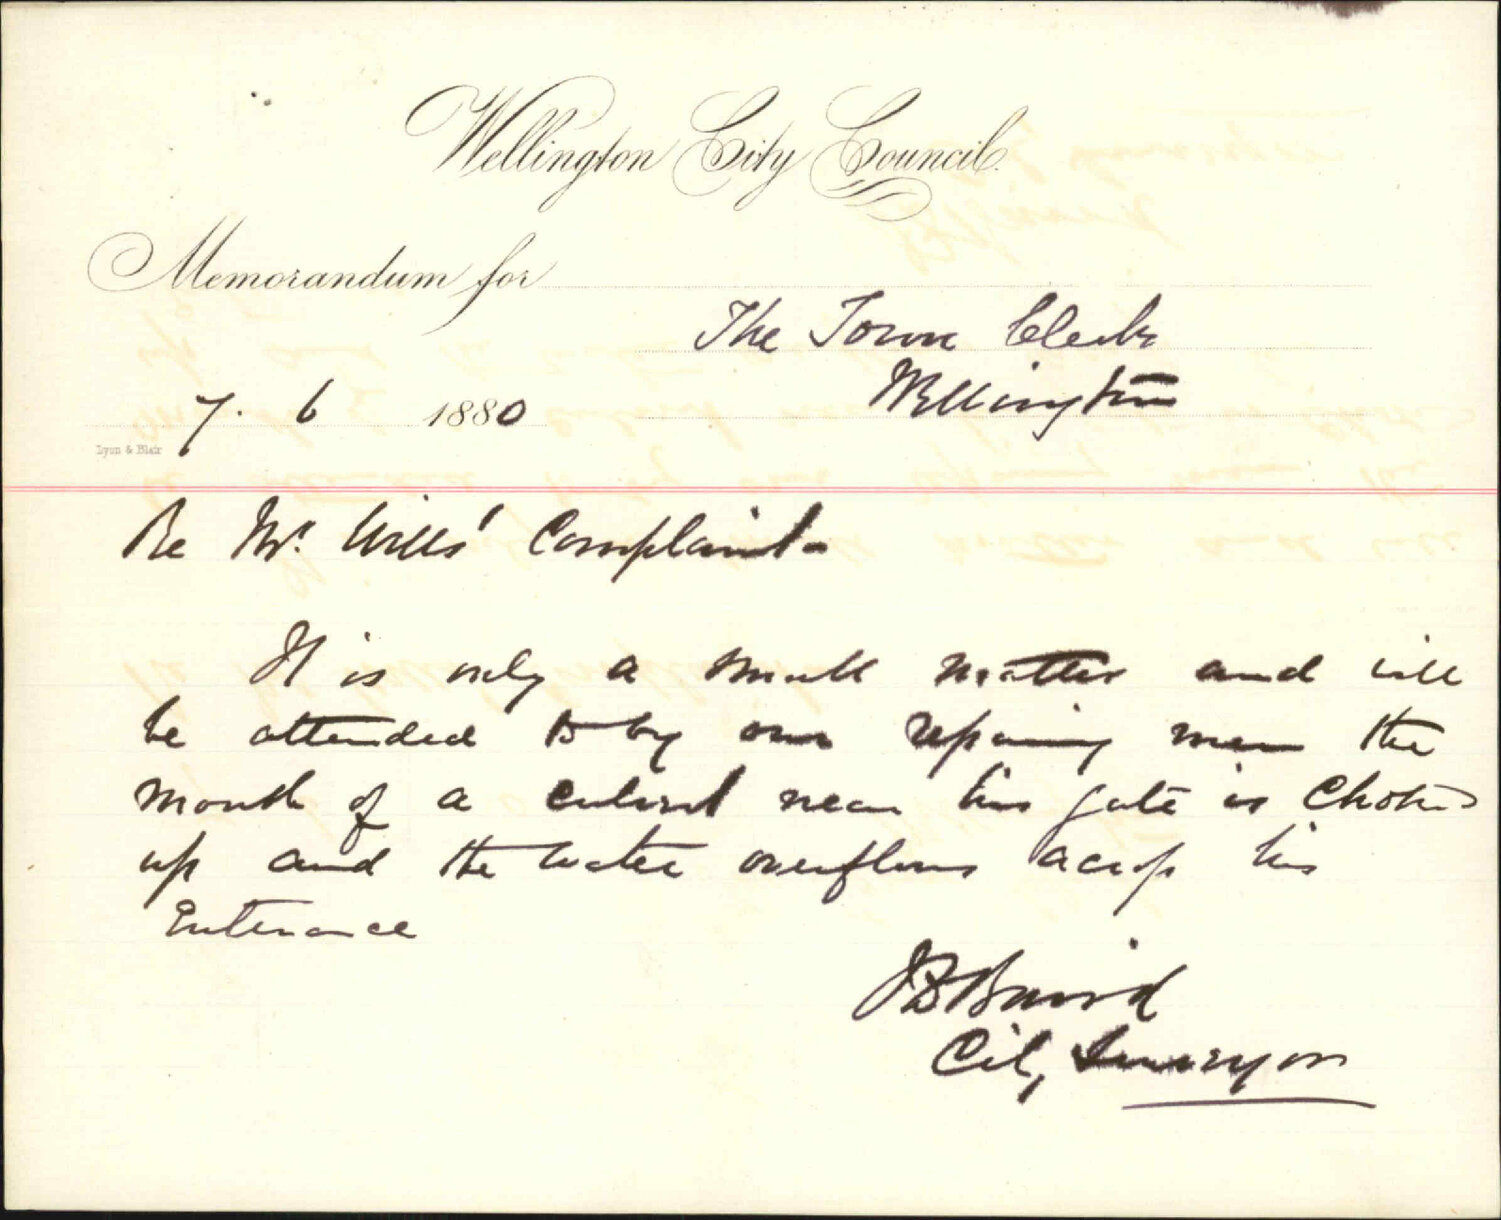 Wellington City Council.
Memorandum for
The Town Clerk
Wellington
7. 6 1880
Lyon & Blair
Re Mr. Wills' Complaint-
It is only a small matter and will
be attended to by our repairing men the
mouth of a culvert near his gate is choked
up and the water overflows across his
Enterance
JD Baird
City Surveyor